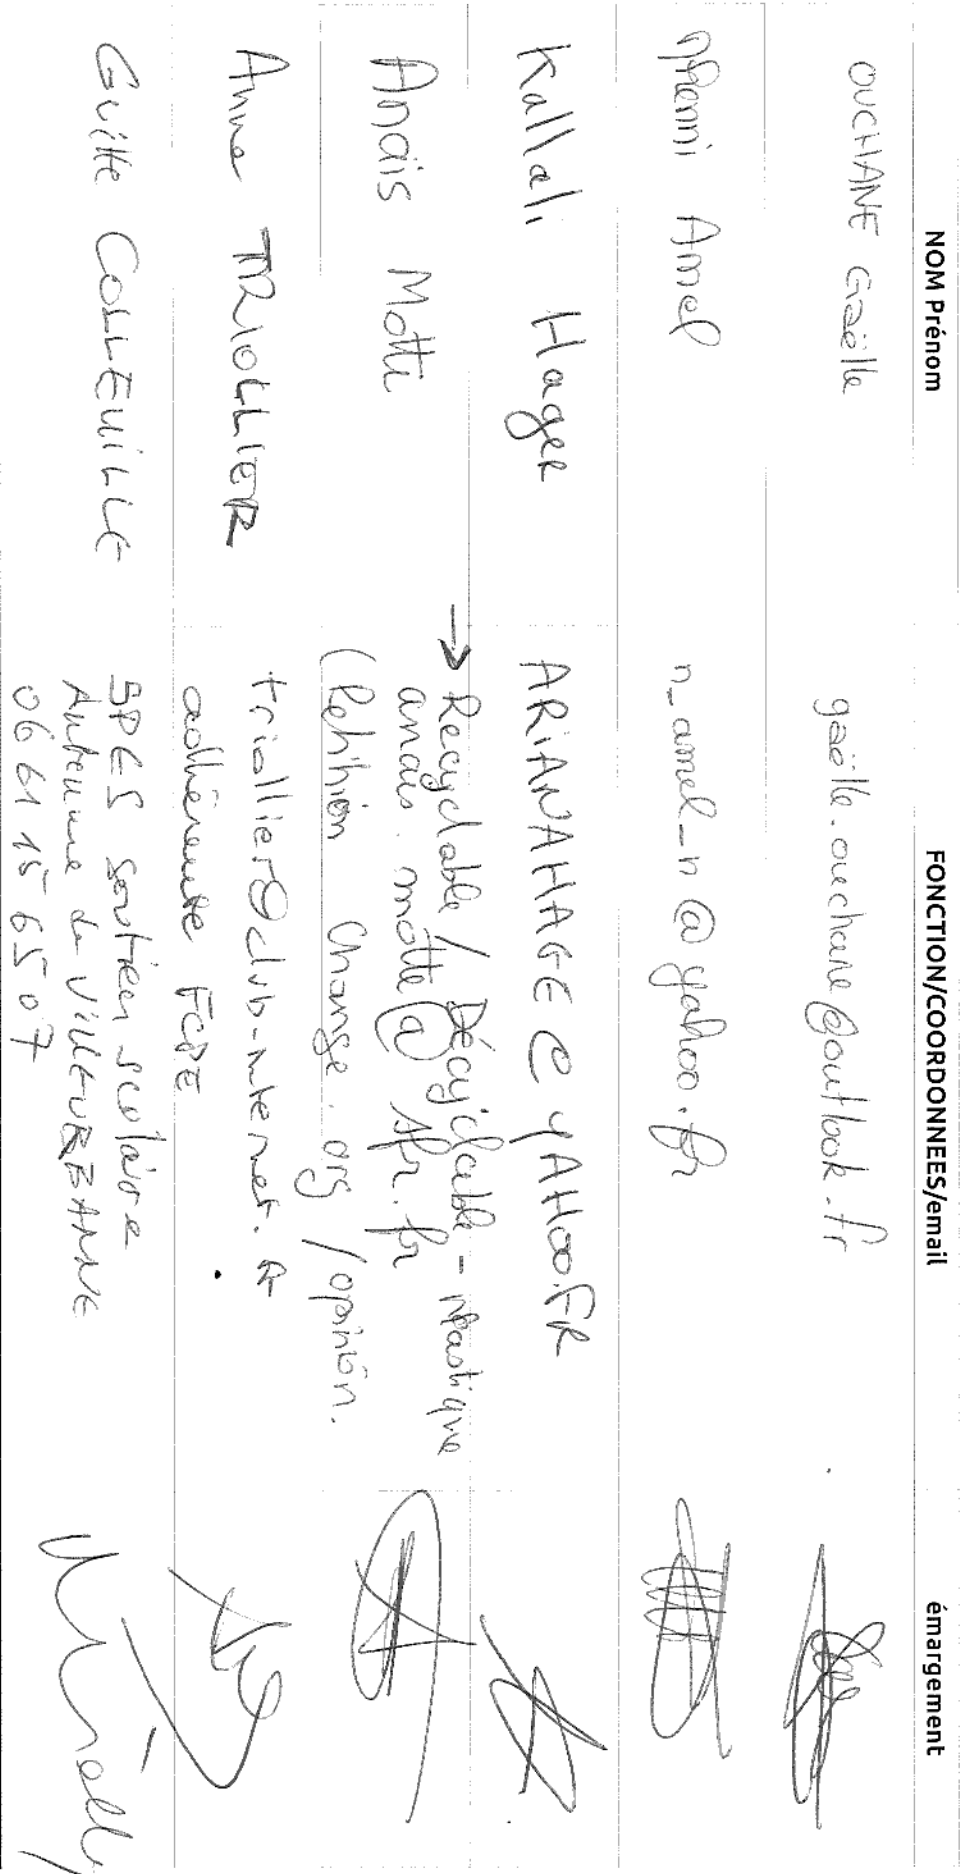 NOM Prénom FONCTION/COORDONNEES/email émargement
OUCHANE Gaëlle gaëlle.ouchane@outlook.fr
Amel n_amel_n@yahoo.fr
Kallali Hager ARIANAHAGE@YAHOO.FR
→ Recyclable / Décyclable - plastique
Anaïs Motte anais.motte@sfr.fr
(Pétition Change.org / opinion.
Anne TRIOLLIER triollier@club-internet.fr
adhérente FCPE
COLLEUILLE SPES soutien scolaire
Antenne de VILLEURBANNE
06 61 15 65 07